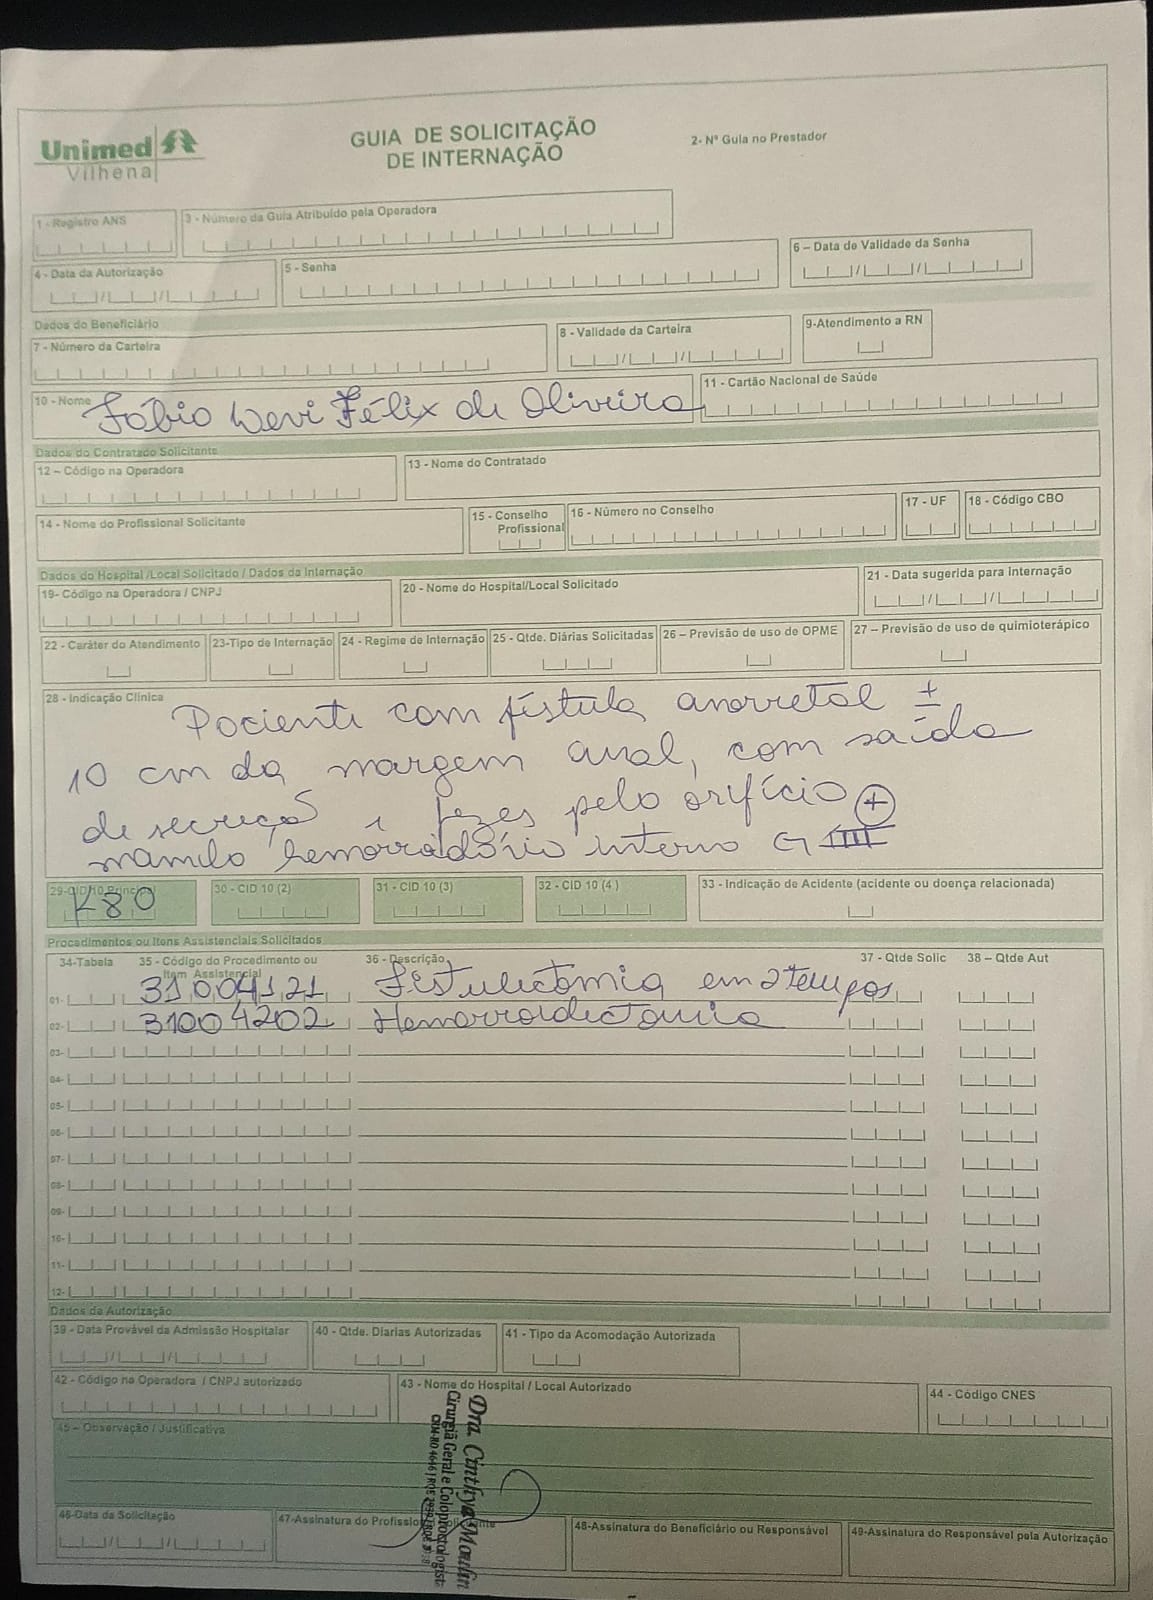 Unimed
Vilhena
GUIA DE SOLICITAÇÃO
DE INTERNAÇÃO
2- Nº Guia no Prestador
1 - Registro ANS
3 - Número da Guia Atribuído pela Operadora
4 - Data da Autorização
5 - Senha
6 – Data de Validade da Senha
Dados do Beneficiário
7 - Número da Carteira
8 - Validade da Carteira
9-Atendimento a RN
10 - Nome Fábio Wevi Félix de Oliveira
11 - Cartão Nacional de Saúde
Dados do Contratado Solicitante
12 – Código na Operadora
13 - Nome do Contratado
14 - Nome do Profissional Solicitante
15 - Conselho
Profissional
16 - Número no Conselho
17 - UF
18 - Código CBO
Dados do Hospital /Local Solicitado / Dados da Internação
19- Código na Operadora / CNPJ
20 - Nome do Hospital/Local Solicitado
21 - Data sugerida para Internação
22 - Caráter do Atendimento
23-Tipo de Internação
24 - Regime de Internação
25 - Qtde. Diárias Solicitadas
26 – Previsão de uso de OPME
27 – Previsão de uso de quimioterápico
28 - Indicação Clínica
Paciente com fístula anorretal ±
10 cm da margem anal, com saída
de secreção e fezes pelo orifício +
mamilo hemorroidário interno G III
29-CID 10 Principal
K80
30 - CID 10 (2)
31 - CID 10 (3)
32 - CID 10 (4)
33 - Indicação de Acidente (acidente ou doença relacionada)
Procedimentos ou Itens Assistenciais Solicitados
34-Tabela
35 - Código do Procedimento ou
Item Assistencial
36 - Descrição
37 - Qtde Solic
38 – Qtde Aut
01- 31004121 Fistulectomia em 2 tempos
02- 31004202 Hemorroidectomia
03-
04-
05-
06-
07-
08-
09-
10-
11-
12-
Dados da Autorização
39 - Data Provável da Admissão Hospitalar
40 - Qtde. Diarias Autorizadas
41 - Tipo da Acomodação Autorizada
42 - Código na Operadora / CNPJ autorizado
43 - Nome do Hospital / Local Autorizado
44 - Código CNES
45 – Observação / Justificativa
Dra. Cinthya Moulin
Cirurgiã Geral e Coloproctologista
CRM-RO 4646
46-Data da Solicitação
47-Assinatura do Profissional Solicitante
48-Assinatura do Beneficiário ou Responsável
49-Assinatura do Responsável pela Autorização